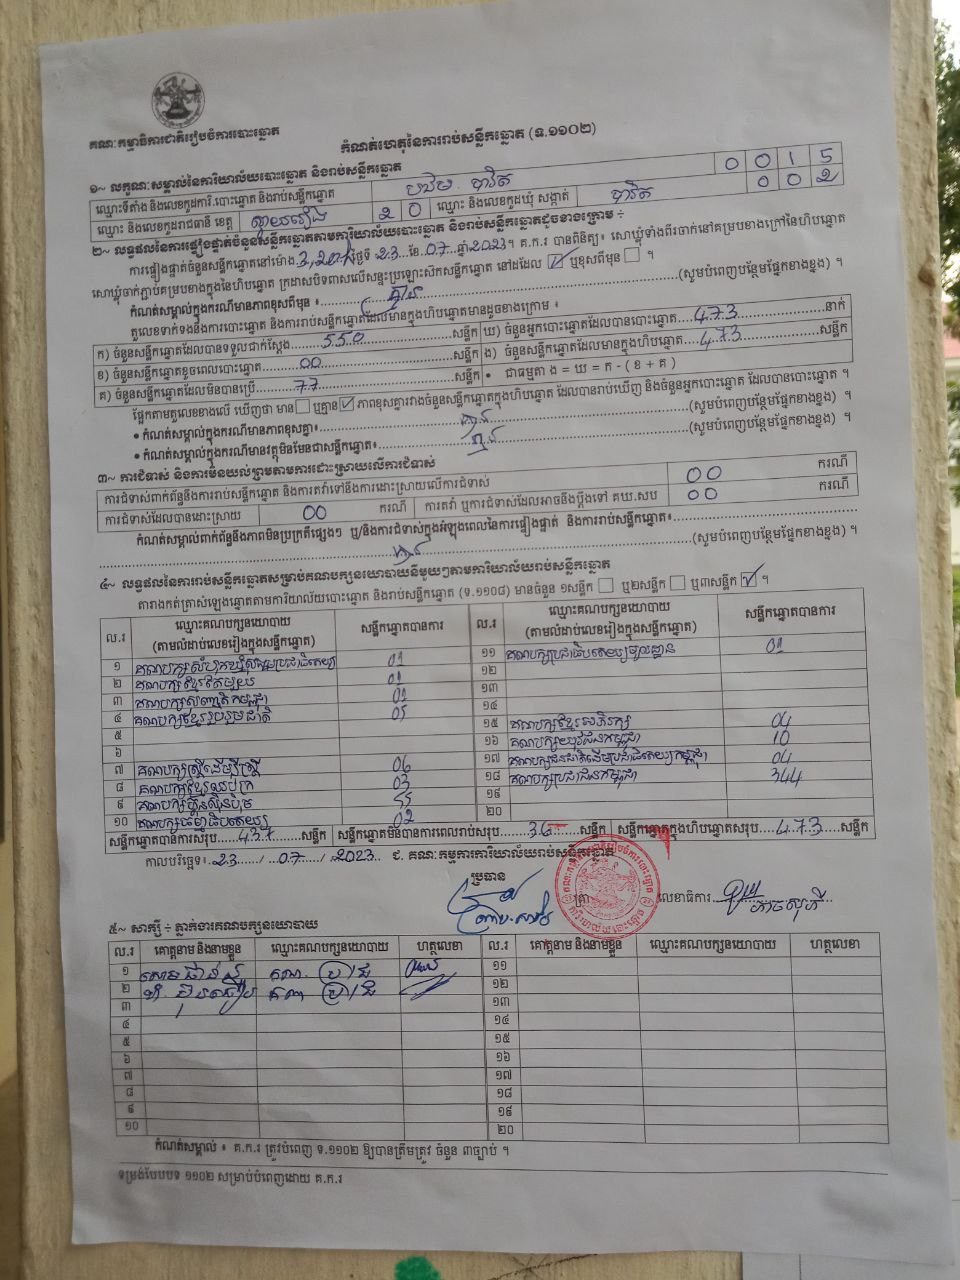 គណៈកម្មាធិការជាតិរៀបចំការបោះឆ្នោត
កំណត់ហេតុនៃការរាប់សន្លឹកឆ្នោត (ទ.១១០២)
១~ លក្ខណៈសម្គាល់នៃការិយាល័យបោះឆ្នោត និងរាប់សន្លឹកឆ្នោត
ឈ្មោះទីតាំង និងលេខកូដការិ.បោះឆ្នោត និងរាប់សន្លឹកឆ្នោត បាវិត 0 0 1 5
ឈ្មោះ និងលេខកូដរាជធានី ខេត្ត ស្វាយរៀង 2 0 ឈ្មោះ និងលេខកូដឃុំ សង្កាត់ បាវិត 0 0 2
២~ លទ្ធផលនៃការផ្ទៀងផ្ទាត់ចំនួនសន្លឹកឆ្នោតតាមការិយាល័យបោះឆ្នោត និងរាប់សន្លឹកឆ្នោតដូចខាងក្រោម ÷
ការផ្ទៀងផ្ទាត់ចំនួនសន្លឹកឆ្នោតនៅម៉ោង ថ្ងៃទី 23 ខែ 07 ឆ្នាំ 2023 ។ គ.ក.រ បានពិនិត្យ៖ សោឃ្លុំទាំងពីរចាក់នៅគម្របខាងក្រៅនៃហិបឆ្នោត
សោឃ្លុំចាក់ភ្ជាប់គម្របខាងក្នុងនៃហិបឆ្នោត ក្រដាសបិទពាសលើសន្ទះប្រឡោះសិកសន្លឹកឆ្នោត នៅដដែល ☑ ឬខុសពីមុន ☐ ។
កំណត់សម្គាល់ក្នុងករណីមានភាពខុសពីមុន ៖ គ្មាន (សូមបំពេញបន្ថែមផ្នែកខាងខ្នង) ។
តួលេខទាក់ទងនឹងការបោះឆ្នោត និងការរាប់សន្លឹកឆ្នោតដែលមានក្នុងហិបឆ្នោតមានដូចខាងក្រោម ៖
ក) ចំនួនសន្លឹកឆ្នោតដែលបានទទួលជាក់ស្ដែង 550 សន្លឹក ឃ) ចំនួនអ្នកបោះឆ្នោតដែលបានបោះឆ្នោត 473 នាក់
ខ) ចំនួនសន្លឹកឆ្នោតខូចពេលបោះឆ្នោត 00 សន្លឹក ង) ចំនួនសន្លឹកឆ្នោតដែលមានក្នុងហិបឆ្នោត 473 សន្លឹក
គ) ចំនួនសន្លឹកឆ្នោតដែលមិនបានប្រើ 77 សន្លឹក • ជាធម្មតា ង = ឃ = ក - ( ខ + គ )
ផ្អែកតាមតួលេខខាងលើ ឃើញថា មាន ☐ ឬគ្មាន ☑ ភាពខុសគ្នារវាងចំនួនសន្លឹកឆ្នោតក្នុងហិបឆ្នោត ដែលបានរាប់ឃើញ និងចំនួនអ្នកបោះឆ្នោត ដែលបានបោះឆ្នោត ។
• កំណត់សម្គាល់ក្នុងករណីមានភាពខុសគ្នា៖ គ្មាន (សូមបំពេញបន្ថែមផ្នែកខាងខ្នង) ។
• កំណត់សម្គាល់ក្នុងករណីមានវត្ថុមិនមែនជាសន្លឹកឆ្នោត៖ គ្មាន (សូមបំពេញបន្ថែមផ្នែកខាងខ្នង) ។
៣~ ការជំទាស់ និងការមិនយល់ព្រមតាមការដោះស្រាយលើការជំទាស់
ការជំទាស់ពាក់ព័ន្ធនឹងការរាប់សន្លឹកឆ្នោត និងការតវ៉ាទៅនឹងការដោះស្រាយលើការជំទាស់ 00 ករណី
ការជំទាស់ដែលបានដោះស្រាយ 00 ករណី ការតវ៉ា ឬការជំទាស់ដែលអាចនឹងប្តឹងទៅ គឃ.សប 00 ករណី
កំណត់សម្គាល់ពាក់ព័ន្ធនឹងភាពមិនប្រក្រតីផ្សេងៗ ឬ/និងការជំទាស់ក្នុងអំឡុងពេលនៃការផ្ទៀងផ្ទាត់ និងការរាប់សន្លឹកឆ្នោត៖
គ្មាន (សូមបំពេញបន្ថែមផ្នែកខាងខ្នង) ។
៤~ លទ្ធផលនៃការរាប់សន្លឹកឆ្នោតសម្រាប់គណបក្សនយោបាយនីមួយៗតាមការិយាល័យរាប់សន្លឹកឆ្នោត
តារាងកត់ត្រាសំឡេងឆ្នោតតាមការិយាល័យបោះឆ្នោត និងរាប់សន្លឹកឆ្នោត (ទ.១១០៨) មានចំនួន ១សន្លឹក ☐ ឬ២សន្លឹក ☐ ឬ៣សន្លឹក ☑ ។
ល.រ ឈ្មោះគណបក្សនយោបាយ (តាមលំដាប់លេខរៀងក្នុងសន្លឹកឆ្នោត) សន្លឹកឆ្នោតបានការ ល.រ ឈ្មោះគណបក្សនយោបាយ (តាមលំដាប់លេខរៀងក្នុងសន្លឹកឆ្នោត) សន្លឹកឆ្នោតបានការ
១ គណបក្សសំបុកឃ្មុំសង្គមប្រជាធិបតេយ្យ 01 ១១ គណបក្សប្រជាធិបតេយ្យមូលដ្ឋាន 01
២ គណបក្សខ្មែរតែមួយ 01 ១២
៣ គណបក្សសញ្ជាតិកម្ពុជា 01 ១៣
៤ គណបក្សខ្មែររួបរួមជាតិ 05 ១៤
៥ ១៥ គណបក្សខ្មែរអភិរក្ស 04
៦ ១៦ គណបក្សយុវជនកម្ពុជា 10
៧ គណបក្សស្ត្រីដើម្បីស្ត្រី 06 ១៧ គណបក្សជនជាតិដើមប្រជាធិបតេយ្យកម្ពុជា 04
៨ គណបក្សខ្មែរឈប់ក្រ 03 ១៨ គណបក្សប្រជាជនកម្ពុជា 344
៩ គណបក្សហ្វ៊ុនស៊ិនប៉ិច 55 ១៩
១០ គណបក្សធម្មាធិបតេយ្យ 02 ២០
សន្លឹកឆ្នោតបានការសរុប 437 សន្លឹក សន្លឹកឆ្នោតមិនបានការពេលរាប់សរុប 36 សន្លឹក សន្លឹកឆ្នោតក្នុងហិបឆ្នោតសរុប 473 សន្លឹក
កាលបរិច្ឆេទ៖ 23 / 07 / 2023 ជ. គណៈកម្មការការិយាល័យរាប់សន្លឹកឆ្នោត
ប្រធាន ត្រា លេខាធិការ
៥~ សាក្សី ÷ ភ្នាក់ងារគណបក្សនយោបាយ
ល.រ គោត្តនាម និងនាមខ្លួន ឈ្មោះគណបក្សនយោបាយ ហត្ថលេខា ល.រ គោត្តនាម និងនាមខ្លួន ឈ្មោះគណបក្សនយោបាយ ហត្ថលេខា
១ ១១
២ ១២
៣ ១៣
៤ ១៤
៥ ១៥
៦ ១៦
៧ ១៧
៨ ១៨
៩ ១៩
១០ ២០
កំណត់សម្គាល់ ៖ គ.ក.រ ត្រូវបំពេញ ទ.១១០២ ឱ្យបានត្រឹមត្រូវ ចំនួន ៣ច្បាប់ ។
ទម្រង់បែបបទ ១១០២ សម្រាប់បំពេញដោយ គ.ក.រ